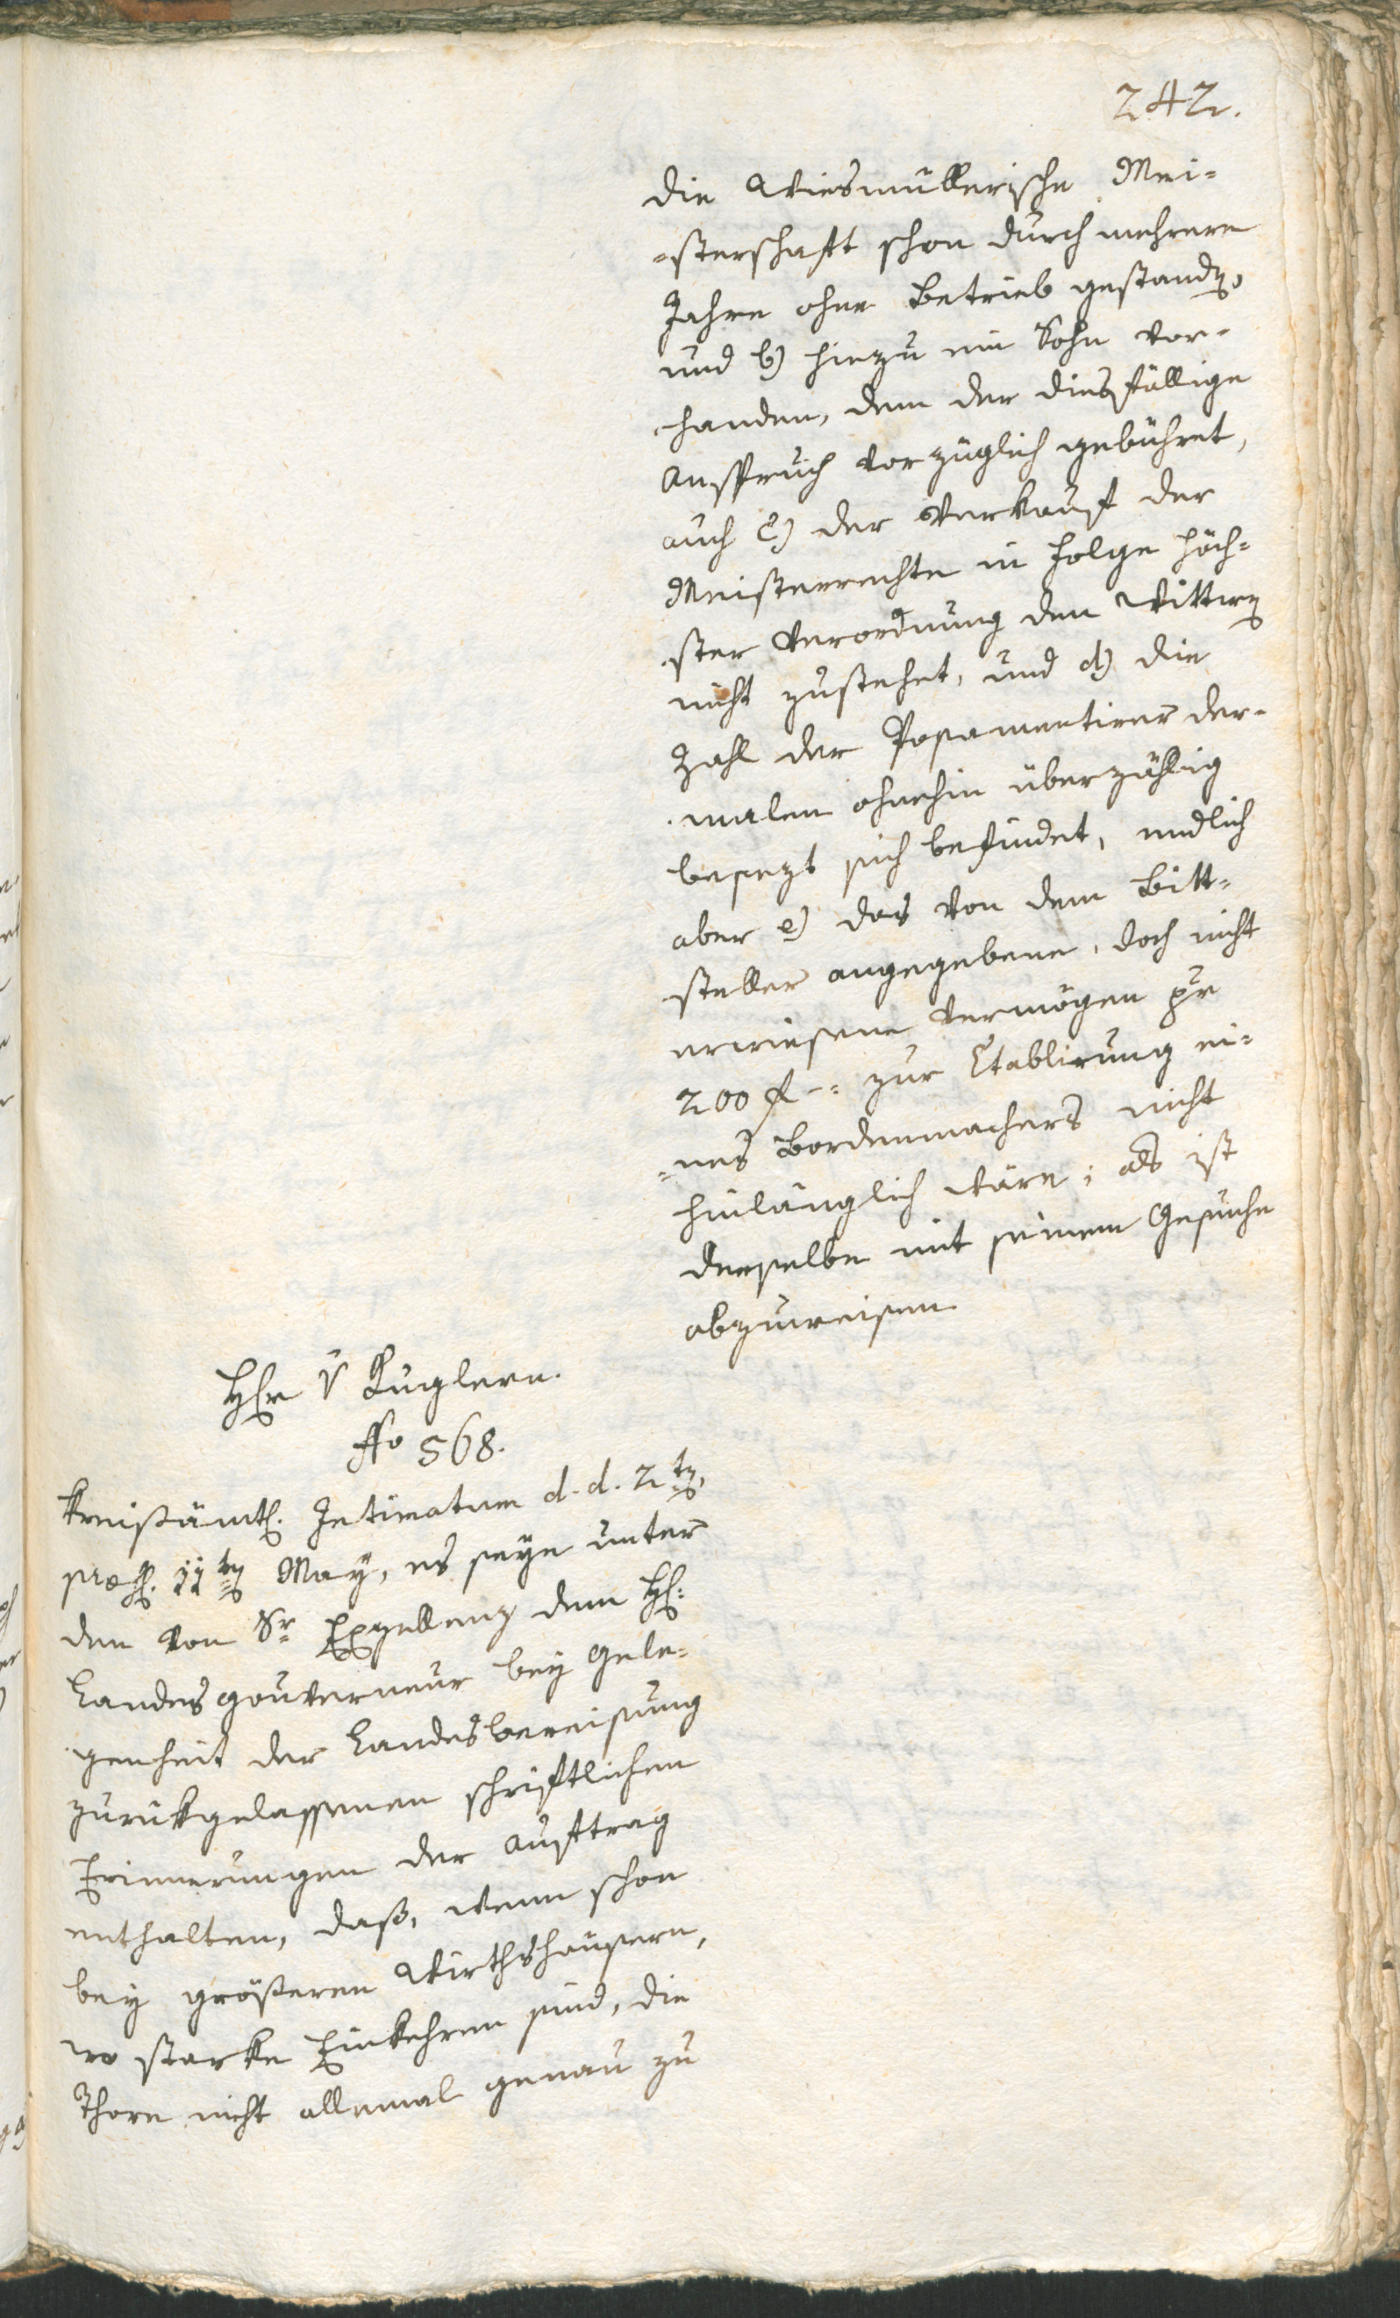 242.
die Wiesmüllerische Mei-
-sterschaft schon durch mehrere
Jahre ohne Betrieb gestanden,
und b) hiezu ein Sohn vor-
handen, dem der diesfällige
Anspruch vorzüglich gebühret,
auch c) der Verkauf der
Meisterrechte in Folge höch-
ster Verordnung den Wittwen
nicht zustehet, und d) die
Zahl der Posamentirer der-
malen ohnehin überzählig
besezt sich befindet, endlich
aber e) das von dem Bitt-
steller angegebene, doch nicht
erwiesene Vermögen pr
200 f -: zur Etablirung ei-
-nes Bordenmachers nicht
hinlänglich wäre; als ist
derselbe mit seinem Gesuche
abzuweisen.
Hr v Kuglern.
No 568.
Kreißämtl. Intimatum d. d. 2ten,
præs. 11ten May, es seye unter
den von Sr Exzellenz dem H:
Landesgouverneur bey Gele-
genheit der Landesbereisung
zurückgelassenen schriftlichen
Erinnerungen der Auftrag
enthalten, daß, wenn schon
bey größeren Wirthshäusern,
wo starke Einkehren sind, die
Thore nicht allemal genau zu